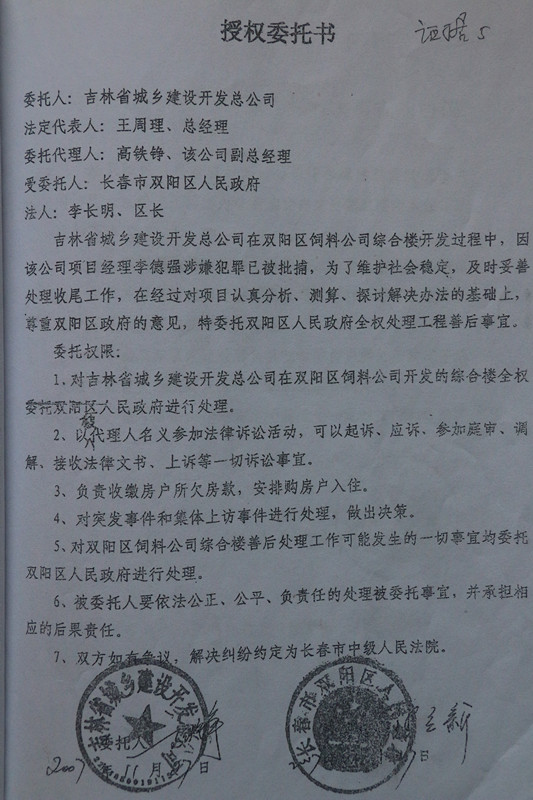 授权委托书
证据5
委托人：吉林省城乡建设开发总公司
法定代表人：王周理、总经理
委托代理人：高铁铮、该公司副总经理
受委托人：长春市双阳区人民政府
法人：李长明、区长
吉林省城乡建设开发总公司在双阳区饲料公司综合楼开发过程中，因
该公司项目经理李德强涉嫌犯罪已被批捕，为了维护社会稳定，及时妥善
处理收尾工作，在经过对项目认真分析、测算、探讨解决办法的基础上，
尊重双阳区政府的意见，特委托双阳区人民政府全权处理工程善后事宜。
委托权限：
1.对吉林省城乡建设开发总公司在双阳区饲料公司开发的综合楼全权
委托双阳区人民政府进行处理。
2、以代理人名义参加法律诉讼活动，可以起诉、应诉、参加庭审、调
解、接收法律文书、上诉等一切诉讼事宜。
3、负责收缴房户所欠房款，安排购房户入住。
4、对突发事件和集体上访事件进行处理，做出决策。
5、对双阳区饲料公司综合楼善后处理工作可能发生的一切事宜均委托
双阳区人民政府进行处理。
6、被委托人要依法公正、公平、负责任的处理被委托事宜，并承担相
应的后果责任。
7、双方如有争议，解决纠纷约定为长春市中级人民法院。
吉林省城乡建设开发
长春市双阳区人
委托人
2007 11月 日
日